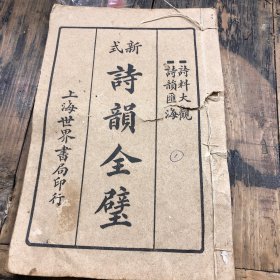 詩料大觀
詩韻匯海
新式
詩韻全璧
上海世界書局印行